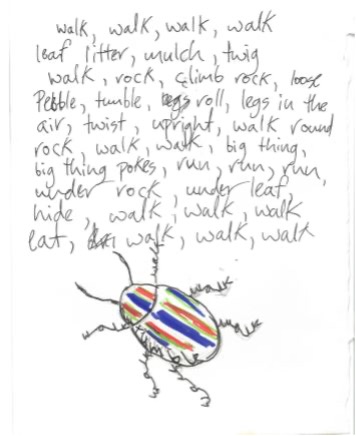 walk, walk, walk, walk
leaf litter, mulch, twig
walk, rock, climb rock, loose
Pebble, tumble, legs roll, legs in the
air, twist, upright, walk round
rock, walk, walk, big thing,
big thing pokes, run, run, run,
under rock, under leaf,
hide, walk, walk, walk
eat, walk, walk, walk
walk
walk
walk
walk